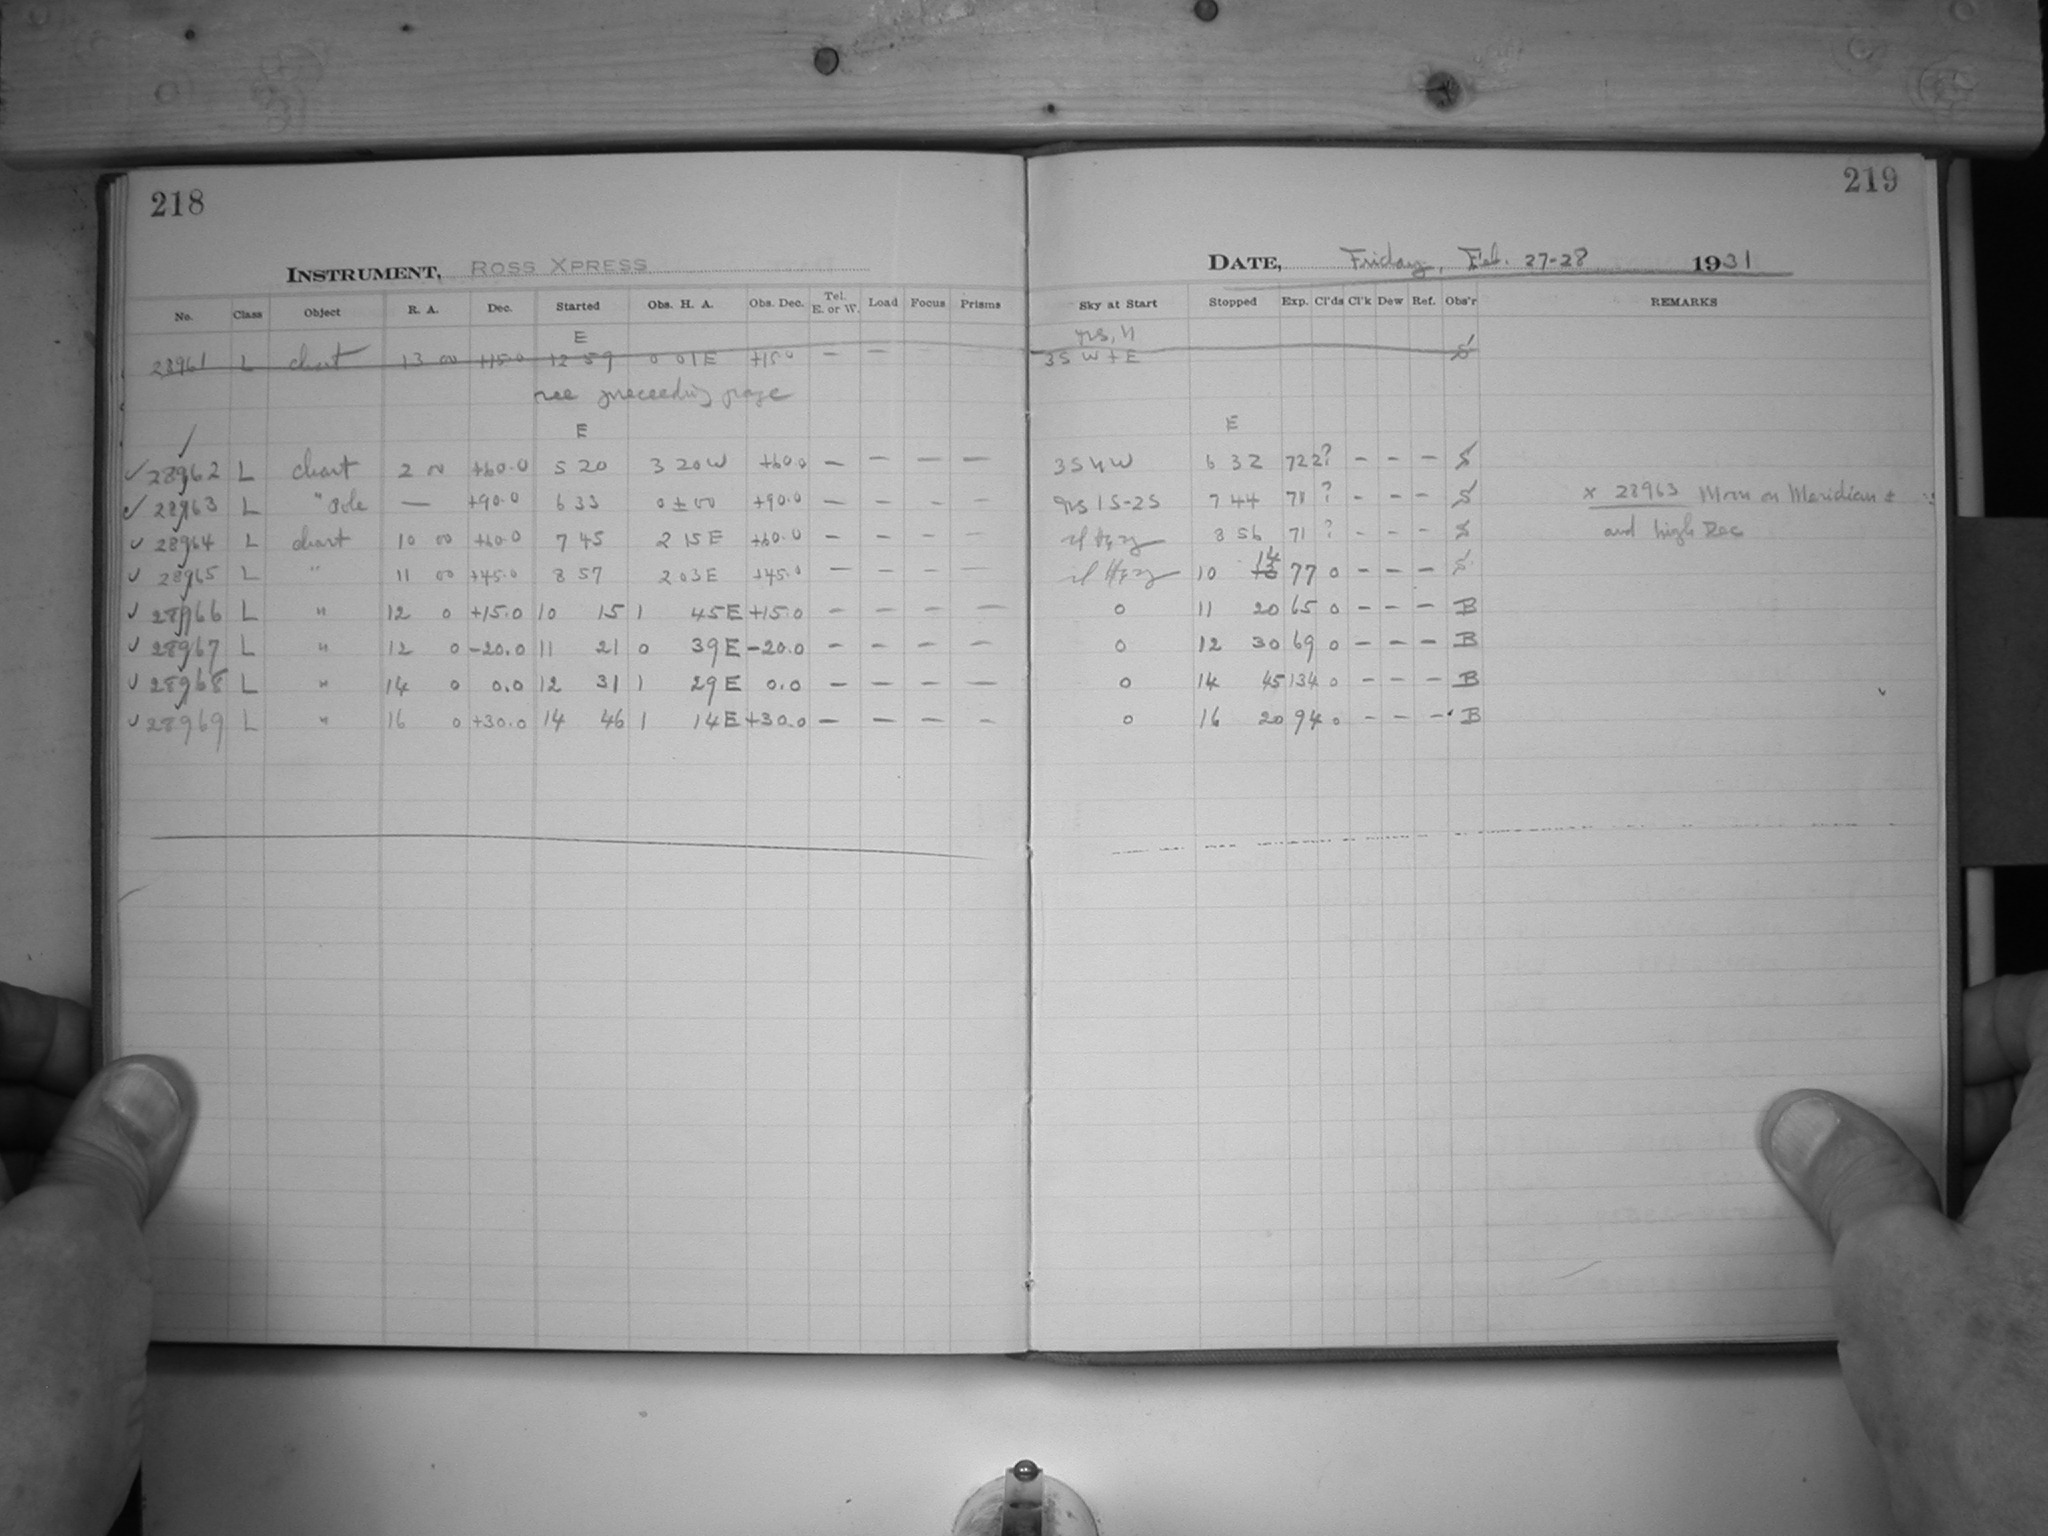 218
INSTRUMENT, ROSS XPRESS
No. Class Object R. A. Dec. Started Obs. H. A. Obs. Dec. Tel. E. or W. Load Focus Prisms
E
28961 L chart 13 00 +15.0 12 59 0 01 E +15.0 — —
see preceeding page
E
✓ 28962 L chart 2 00 +60.0 5 20 3 20 W +60.0 — — — —
✓ 28963 L " Pole — +90.0 6 33 0 ± 00 +90.0 — — — —
✓ 28964 L chart 10 00 +60.0 7 45 2 15 E +60.0 — — — —
✓ 28965 L " 11 00 +45.0 8 57 2 03 E +45.0 — — — —
✓ 28966 L " 12 0 +15.0 10 15 1 45 E +15.0 — — — —
✓ 28967 L " 12 0 -20.0 11 21 0 39 E -20.0 — — — —
✓ 28968 L " 14 0 0.0 12 31 1 29 E 0.0 — — — —
✓ 28969 L " 16 0 +30.0 14 46 1 14 E +30.0 — — — —
219
DATE, Friday, Feb. 27-28 1931
Sky at Start Stopped Exp. Cl'ds Cl'k Dew Ref. Obs'r REMARKS
3S W + E S
E
6 32 72 2? - - - S
1S-2S 7 44 71 ? - - - S x 28963 Moon on Meridian ±
8 56 71 ? - - - S and high Dec
10 14 77 0 - - - S
0 11 20 65 0 - - - B
0 12 30 69 0 - - - B
0 14 45 134 0 - - - B
0 16 20 94 0 - - - B